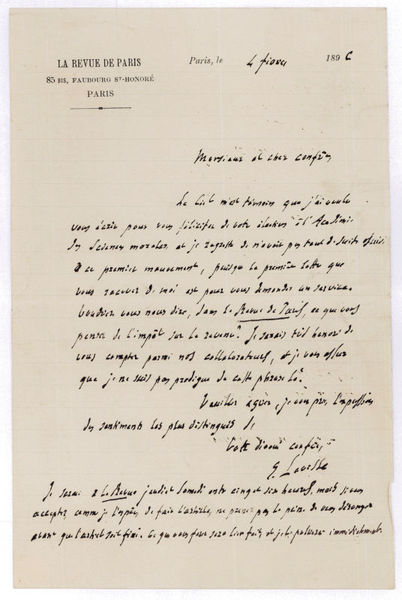 LA REVUE DE PARIS
85 BIS, FAUBOURG St-HONORÉ
PARIS
Paris, le 4 février 1896
Monsieur et cher confrère,
Le Ciel m'est témoin que j'ai voulu
vous écrire pour vous féliciter de votre élection à l'Académie
des Sciences morales et je regrette de n'avoir pas tout de suite obéi
à ce premier mouvement, puisque la première lettre que
vous recevez de moi est pour vous demander un service.
Voudriez vous nous dire, dans la Revue de Paris, ce que vous
pensez de l'impôt sur le revenu ? Je serais très honoré de
vous compter parmi nos collaborateurs, et je vous assure
que je ne suis pas prodigue de cette phrase là.
Veuillez agréer, je vous prie, l'expression
des sentiments les plus distingués de
votre dévoué confrère,
E. Lavisse
Je serai à la Revue jeudi et samedi entre cinq et six heures, mais si vous
acceptez comme je l'espère, de faire l'article, ne prenez pas la peine de vous déranger
avant que l'article soit fini. Ce que vous ferez sera bien fait, et je le publierai immédiatement.